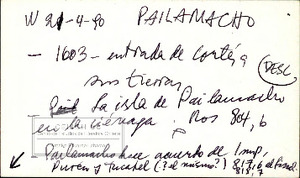 W 21-4-90 PAILAMACHO
- 1603 - entrada de Cortés, a
sus tierras
DESC
La isla de Pailamacho
en la ciénaga. Ros 804, 6
Pailamacho hace acuerdo de Imp,
Puren y Tucapel (? el mismo?) 817, 6 al final
818, 7